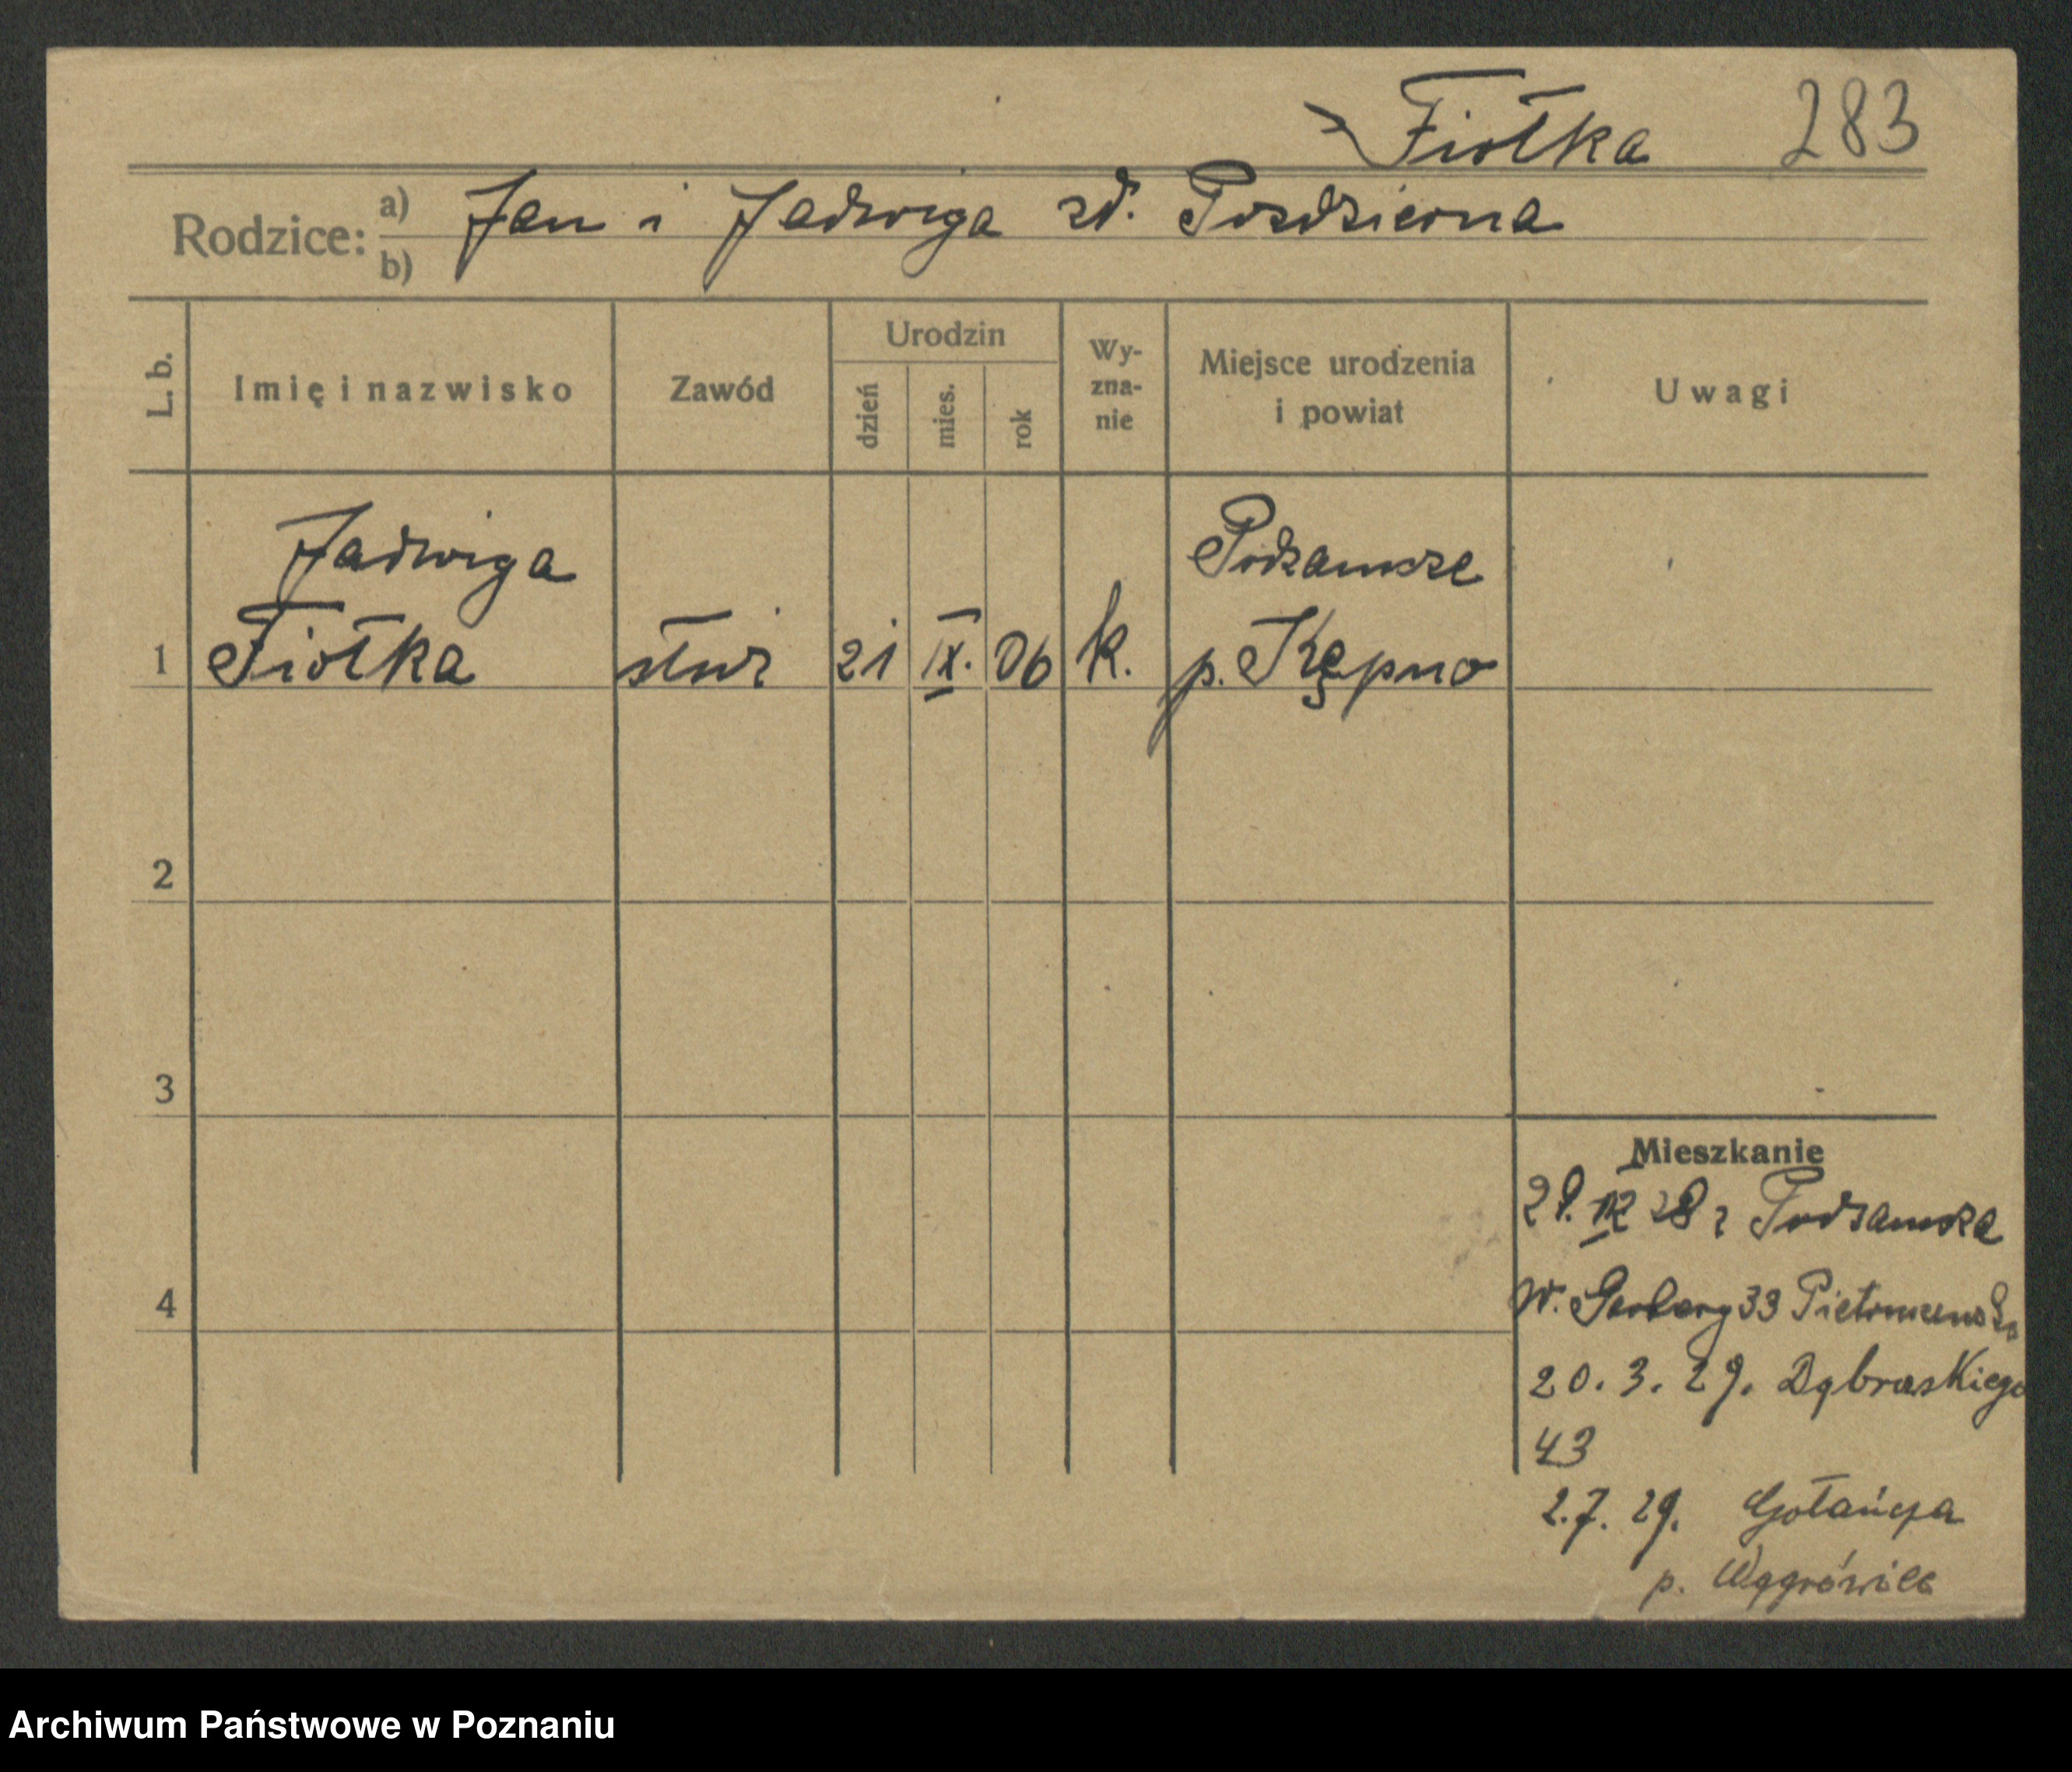 Fiołka 283
Rodzice: a) Jan i Jadwiga zd. Pozdzierna
b)
L. b. Imię i nazwisko Zawód Urodzin dzień mies. rok Wy-zna-nie Miejsce urodzenia i powiat Uwagi
Jadwiga Podzamcze
1 Fiołka służ 21 IX. 06 k. p. Kępno
2
3
Mieszkanie
28. IX 28 z Podzamcza
4
W. Garbary 33
20. 3. 29. Dąbrowskiego
43
2.7. 29. Gołańcza
p. Wągrówiec
Archiwum Państwowe w Poznaniu